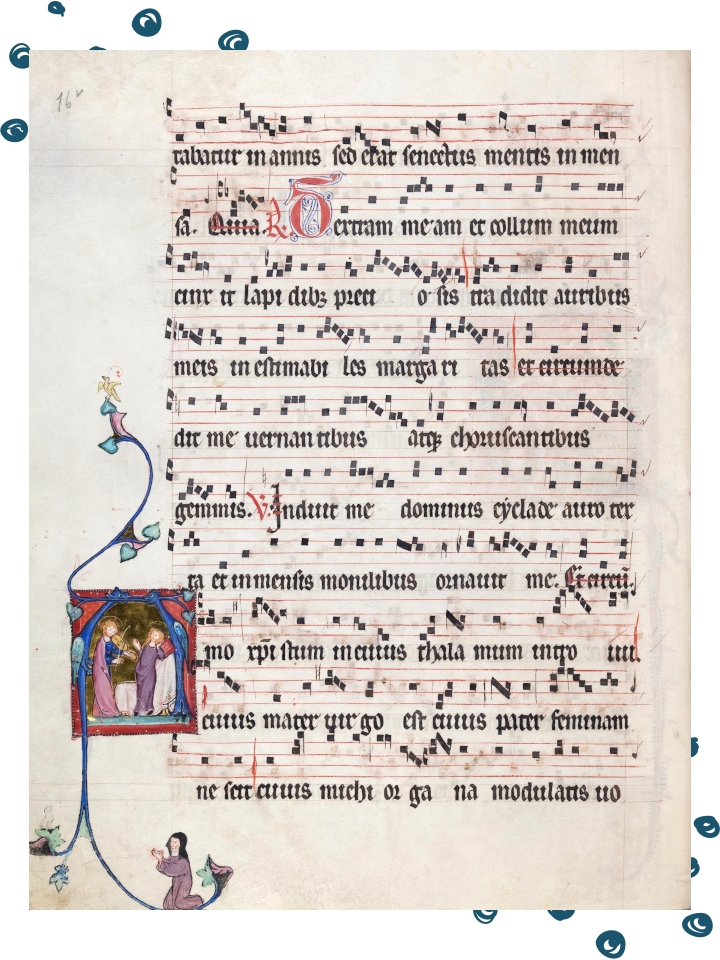 16v
tabatur in annis sed erat senectus mentis in men
sa. Quia. R. Dextram meam et collum meum
cinx it lapi dibz preci o sis tra didit auribus
meis in estimabi les marga ri tas et circumde
dit me vernan tibus atqz choruscantibus
gemmis. V. Induit me dominus cyclade auro tex
ta et inmensis monilibus ornavit me. Et circu.
mo xpi stum in cuius thala mum intro ivi
cuius mater vir go est cuius pater feminam
ne scit cuius michi or ga na modulatis vo